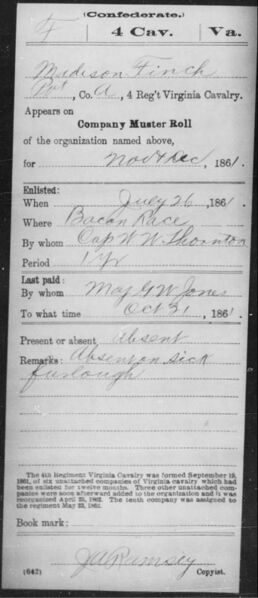 (Confederate.)
F 4 Cav. Va.
Madison Finch
Pvt, Co. A, 4 Reg't Virginia Cavalry.
Appears on
Company Muster Roll
of the organization named above,
for Nov & Dec, 1861.
Enlisted:
When July 26, 1861.
Where Bacon Race
By whom Cap W W Thornton
Period 1 yr
Last paid:
By whom Maj G W Jones
To what time Oct 31, 1861
Present or absent Absent
Remarks: Absent on sick
furlough
The 4th Regiment Virginia Cavalry was formed September 19,
1861, of six unattached companies of Virginia cavalry which had
been enlisted for twelve months. Three other unattached com-
panies were soon afterward added to the organization and it was
reorganized April 25, 1862. The tenth company was assigned to
the regiment May 23, 1862.
Book mark:
J A Ramsey
(642) Copyist.